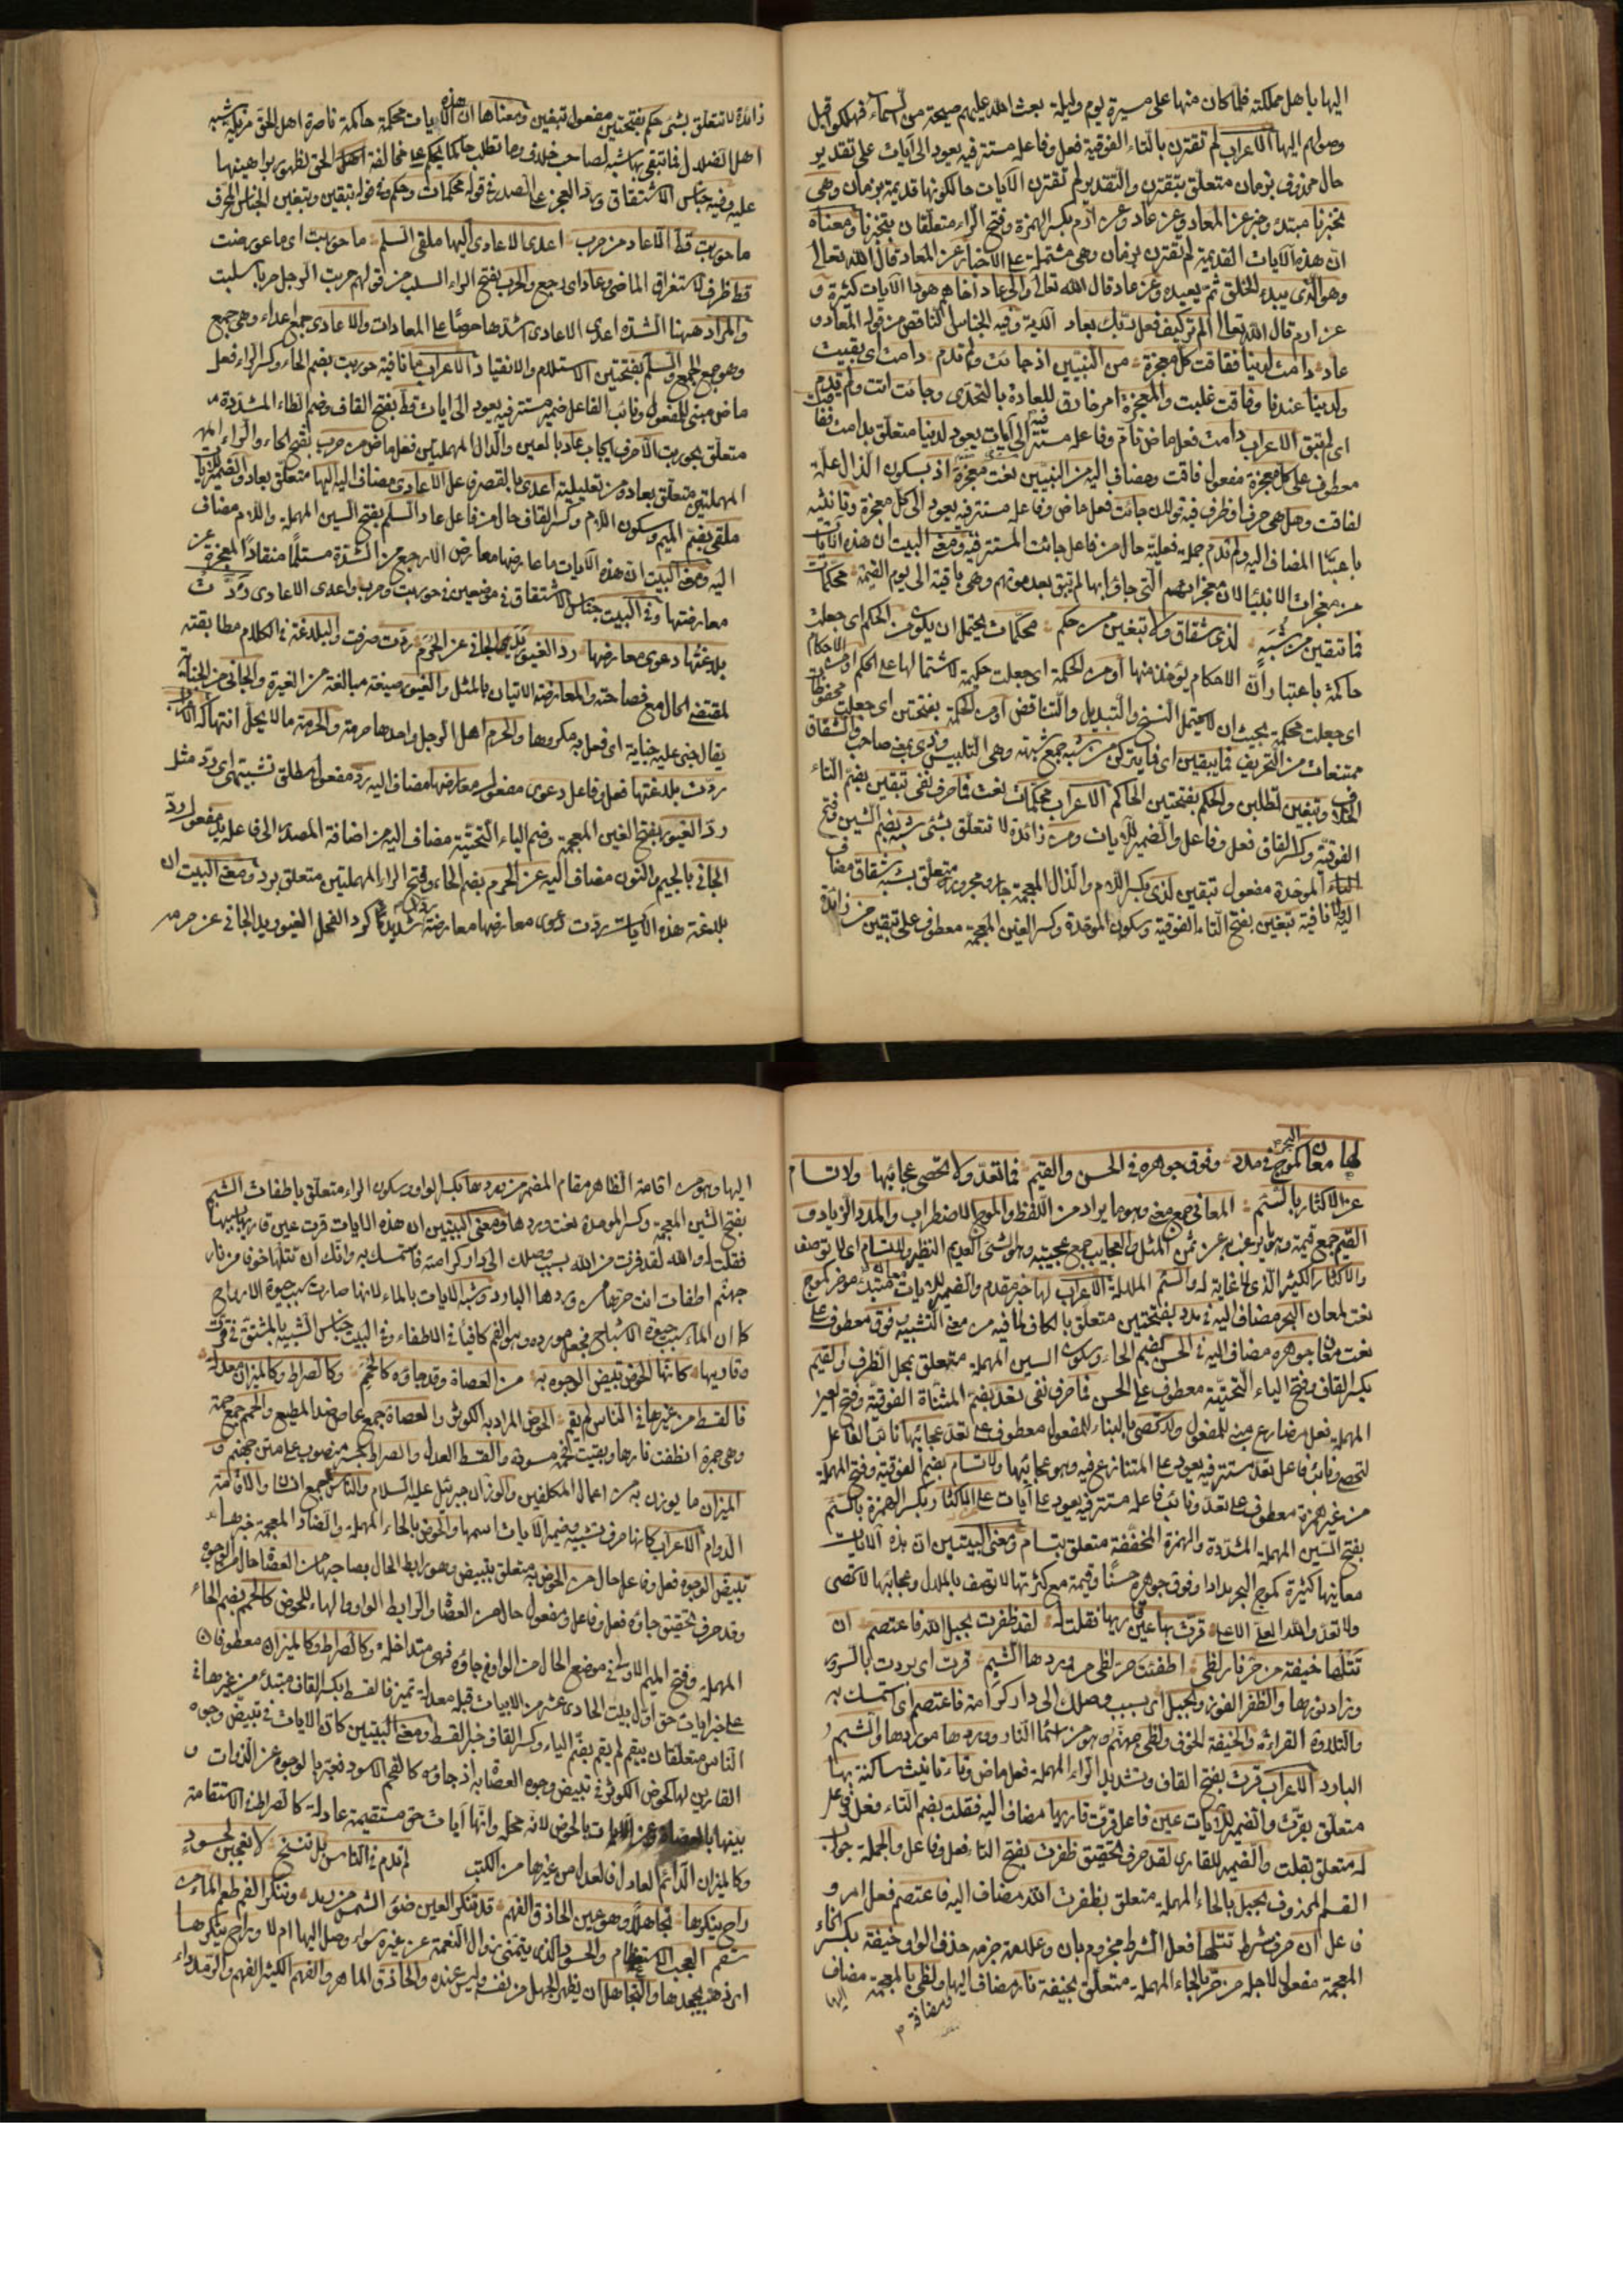 اليها باهل مملكته فلما كان منها على مسيرة يوم وليلة بعث الله عليهم صيحة من السماء فهلكوا قبل
وصولهم اليها الاعراب لم تقترن بالتاء الفوقية فعل وفاعله مستتر فيه يعود الى آيات على تقدير
حال محذوف بزمان متعلق بتقترن والتقدير لم تقترن الآيات حالكونها قديمة بزمان وهى
تخبرنا مبتدء وخبر عن المعاد وعن عاد وعن ارم بكسر الهمزة وفتح الراء متعلقان بتخبرنا ومعناه
ان هذه الآيات القديمة لم تقترن بزمان وهى مشتملة على الاخبار عن المعاد قال الله تعالى
وهو الذى يبدء الخلق ثم يعيده وعن عاد قال الله تعالى والى عاد اخاهم هودا الآيات كثيرة و
عن ارم قال الله تعالى الم تر كيف فعل ربك بعاد الآية وفيه الجناس الناقص من قوله المعاد و
عاد دامت لدينا ففاقت كل معجزة من النبيين اذ جائت ولم تدم دامت اى بقيت
ولدينا عندنا وفاقت غلبت والمعجزة امر خارق للعادة بالتحدى وجائت اتت ولم تدم
اى لم تبق الاعراب دامت فعل ماض تام وفاعله مستتر فيه الى آيات يعود لدينا متعلق بدامت ففاقت
معطوف على كل معجزة مفعول فاقت ومضاف اليه من النبيين نعت معجزة اذ بسكون الذال علة
لفاقت وهل هى حرف او ظرف فيه قولان جائت فعل ماض وفاعله مستتر فيه يعود الى كل معجزة وتانيثه
باعتبار المضاف اليه ولم تدم جملة فعلية حال من فاعل جائت المستتر فيه ومعنى البيت ان هذه الآيات
من معجزات الانبياء لان معجزاتهم التى جاؤا بها لم تبق بعد موتهم وهى باقية الى يوم القيمة محكمات
فما تبقين من شبه لذى شقاق ولا تبغين من حكم محكمات يحتمل ان يكون من الحكم اى جعلت
حاكمة باعتبار ان الاحكام يؤخذ منها او من الحكمة اى جعلت حكيمة لاشتمالها على الحكم او من الاحكام
اى جعلت محكمة بحيث ان لا يحتمل النسخ والتبديل والتناقض او من الحكمة بفتحتين اى جعلت محفوظات
ممتنعات من التحريف فما يبقين اى فما يتركن من شبه جمع شبهة وهى التلبيس وذى بمعنى صاحب والشقاق
الخلاف وتبغين تطلبن والحكم بفتحتين الحاكم الاعراب محكمات نعت فما حرف نفى تبقين بضم التاء
الفوقية وكسر القاف فعل وفاعل والضمير للآيات ومن زائدة لا تتعلق بشئ شبه بضم الشين فتح
الباء الموحدة مفعول تبقين لذى بكسر اللام والذال المعجمة جار ومجرور متعلق بشبه شقاق مضاف
اليه ولا نافية تبغين بفتح التاء الفوقية وسكون الموحدة وكسر الغين المعجمة معطوف على تبقين من زائدة
زائدة لا تتعلق بشئ حكم بفتحتين مفعول تبغين ومعناها ان هذه الآيات محكمة حاكمة ناصرة اهل الحق مزيلة شبه
اهل الضلال فما تبقى بها شبه لصاحب خلاف وما تطلب حاكما يحكم على مخالفة اهل الحق لظهور براهينها
عليه وفيه جناس الاشتقاق ورد العجز على الصدر فى قوله محكمات وحكم وفى قوله تبقين وتبغين الجناس المحرف
ما حوربت قط الا عاد من حرب اعدى الاعادى اليها ملقى السلم ما حوربت اى ما عورضت
قط ظرف لاستغراق الماضى وعاد اى رجع والحرب بفتح الراء السلب من قولهم حرب الرجل حربا سلبت
والمراد ههنا الشدة اعدى الاعادى اشدها حرصا على المعادات والاعادى جمع اعداء وهى جمع
وهو جمع الجمع والسلم بفتحتين الاستسلام والانقياد الاعراب ما نافية حوربت بضم الحاء وكسر الراء فعل
ماض مبنى للمفعول ونائب الفاعل ضمير مستتر فيه يعود الى آيات قط بفتح القاف وضم الطاء المشددة
متعلق بحوربت الا حرف ايجاب عاد بالعين والدال المهملتين فعل ماض من حرب بفتح الحاء والراء
المهملتين متعلق بعاد ومن تعليلية اعدى بالقصر فاعل الاعادى مضاف اليه اليها متعلق بعاد والضمير للآيات
ملقى بضم الميم وسكون اللام وكسر القاف حال من فاعل عاد السلم بفتح السين المهملة واللام مضاف
اليه ومعنى البيت ان هذه الآيات ما عارضها معارض الا رجع من الشدة مستسلما منقادا للعجز عن
معارضتها وفى البيت جناس الاشتقاق فى موضعين فى حوربت وحرب واعدى الاعادى ردت
بلاغتها دعوى معارضها رد الغيور يد الجانى عن الحرم ردت صرفت والبلاغة فى الكلام مطابقته
لمقتضى الحال مع فصاحته والمعارضة الاتيان بالمثل والغيور صيغة مبالغة من الغيرة والجانى من الجناية
يقال جنى عليه جناية اى فعل به مكروها والحرم اهل الرجل واحدها حرمة والحرمة ما لا يحل انتهاكه الاعراب
ردت بلاغتها فعل وفاعل دعوى مفعول معارضها مضاف اليه رد مفعول مطلق تشبيهى اى رد مثل
رد الغيور بفتح الغين المعجمة وضم الياء التحتية مضاف اليه من اضافة المصدر الى فاعله يد مفعول رد
الجانى بالجيم والنون مضاف اليه عن الحرم بضم الحاء وفتح الراء المهملتين متعلق برد ومعنى البيت ان
بلاغة هذه الآيات ردت دعوى معارضها معارضة شديدا كرد الفحل الغيور يد الجانى عن حرمه
لها معان كموج البحر فى مدد وفوق جوهره فى الحسن والقيم فما تعد ولا تحصى عجائبها ولا تسام
على الاكثار بالسئم المعانى جمع معنى وهو ما يراد من اللفظ والموج الاضطراب والمدد الزيادة و
القيم جمع قيمة وهو ما يرغب به عن ثمن المثل والعجايب جمع عجيبة وهو الشئ العديم النظير ولا تسام اى لا توصف
والاكثار الكثير الذى لا غاية له والسئم الملالة الاعراب لها خبر مقدم والضمير للآيات معان مبتدء مؤخر كموج
نعت لمعان البحر مضاف اليه فى مدد بفتحتين متعلق بالكاف لما فيه من معنى التشبيه وفوق معطوف على
نعت معان جوهره مضاف اليه فى الحسن بضم الحاء وسكون السين المهملة متعلق بمحل الظرف والقيم
بكسر القاف وفتح الياء التحتية معطوف على الحسن فما حرف نفى تعد بضم المثناة الفوقية وفتح العين
المهملة فعل مضارع مبنى للمفعول ولا تحصى بالبناء للمفعول معطوف على تعد عجائبها نائب الفاعل
لتحصى ونائب فاعل تعد مستتر فيه يعود على المتنازع فيه وهو عجائبها ولا تسام بضم الفوقية وفتح المهملة
من غير همزة معطوف على تعد ونائب فاعله مستتر فيه يعود على آيات على الاكثار بكسر الهمزة بالسئم
بفتح السين المهملة المشددة والهمزة المخففة متعلق بتسام ومعنى البيتين ان هذه الآيات
معانيها كثيرة كموج البحر مدادا وفوق جوهره حسنا وقيمة مع كثرتها لا توصف بالملال وعجائبها لا تحصى
ولا تعد والله العلى الاعلى قرت بها عين قاريها فقلت له لقد ظفرت بحبل الله فاعتصم ان
تتلها خيفة من حر نار لظى اطفئت حر لظى من وردها الشبم قرت اى بردت بالسرور
وزاد نورها والظفر الفوز والحبل اى بسبب وصلك الى دار كرامته فاعتصم اى استمسك به
والتلاوة القرائة والخيفة الخوف ولظى جهنم وهو من اسماء النار ووردها موردها والشبم
البارد الاعراب قرت بفتح القاف وتشديد الراء المهملة فعل ماض وتاء تانيث ساكنة بها
متعلق بقرت والضمير للآيات عين فاعل قرت قاريها مضاف اليه فقلت بضم التاء فعل وفاعل
له متعلق بقلت والضمير للقارى لقد حرف تحقيق ظفرت بفتح التاء فعل وفاعل والجملة جواب
القسم المحذوف بحبل بالحاء المهملة متعلق بظفرت الله مضاف اليه فاعتصم فعل امر و
فاعل ان حرف شرط تتلها فعل الشرط مجزوم بان وعلامة جزمه حذف الواو خيفة بكسر الخاء
المعجمة مفعول لاجله من حر بالحاء المهملة متعلق بخيفة نار مضاف اليها ولظى بالمعجمة مضاف
اليها
اليها وهو من اقامة الظاهر مقام المضمر من وردها بكسر الواو وسكون الراء متعلق باطفات الشبم
بفتح الشين المعجمة وكسر الموحدة نعت وردها ومعنى البيتين ان هذه الآيات قرت عين قاريها
فقلت له والله لقد فزت من الله بسبب وصلك الى دار كرامته فاستمسك به وانك ان تتلها خوفا من نار
جهنم اطفات انت حرها من وردها البارد وشبه الآيات بالماء لانها صارت سبب حيوة الارواح
كما ان الماء سبب حيوة الاشباح فجعل مورده وهو الفم كافيا فى الاطفاء وفى البيت جناس الشبيه بالمشتق فى قرت
وقاريها كانها الحوض تبيض الوجوه به من العصاة وقد جاؤه كالحمم وكالصراط وكالميزان معدلة
فالقسط من غيرها فى الناس لم يقم الحوض المراد به الكوثر والعصاة جمع عاص ضد المطيع والحمم جمع حممة
وهى جمرة انطفت نارها وبقيت فحمة مسودة والقسط العدل والصراط جسر منصوب على متن جهنم و
الميزان ما يوزن به من اعمال المكلفين والوزان جبرئيل عليه السلام والناس جمع انسان والاقامة
الدوام الاعراب كانها حرف تشبيه وضمير الآيات اسمها والحوض بالحاء المهملة والضاد المعجمة خبرها
تبيض الوجوه فعل وفاعل حال من الحوض به متعلق بتبيض وهو رابط الحال بصاحبها من العصاة حال من الوجوه
وقد حرف تحقيق جاؤه فعل وفاعل ومفعول حال من العصاة والرابط الواو والهاء للحوض كالحمم بضم الحاء
المهملة وفتح الميم الاولى فى موضع الحال من الواو فى جاؤه فهى متداخلة وكالصراط وكالميزان معطوفان
على خبر آيات حق اول بيت الحادى عشر من الابيات قبله معدلة تميز فالقسط بكسر القاف مبتدء من غيرها فى
الناس متعلقان بيقم لم يقم بضم الياء وكسر القاف خبر القسط ومعنى البيتين كان الآيات فى تبيض وجوه
القارين لها كحوض الكوثر فى تبيض وجوه العصاة به اذ جاؤه كالفحم الاسود فعبر بالوجوه عن الذوات و
بالحوض لانه محله وانها آيات حق مستقيمة عادلة كالصراط فى الاستقامة
وكالميزان الدائم العادل فالعدل من غيرها من الكتب لم تدم فى الناس بل تنسخ لا تعجبن لحسود
راح ينكرها تجاهلا وهو عين الحاذق الفهم قد تنكر العين ضوء الشمس من رمد وتنكر الفم طعم الماء من
سقم العجب الاستعظام والحسود الذى يتمنى زوال النعمة عن غيره سواء وصل اليها ام لا وراح ينكرها
اى ذهب يجحدها والتجاهل ان يظهر الجهل من نفسه وليس عنده والحاذق الماهر والفهم الكثير الفهم والرمد داء